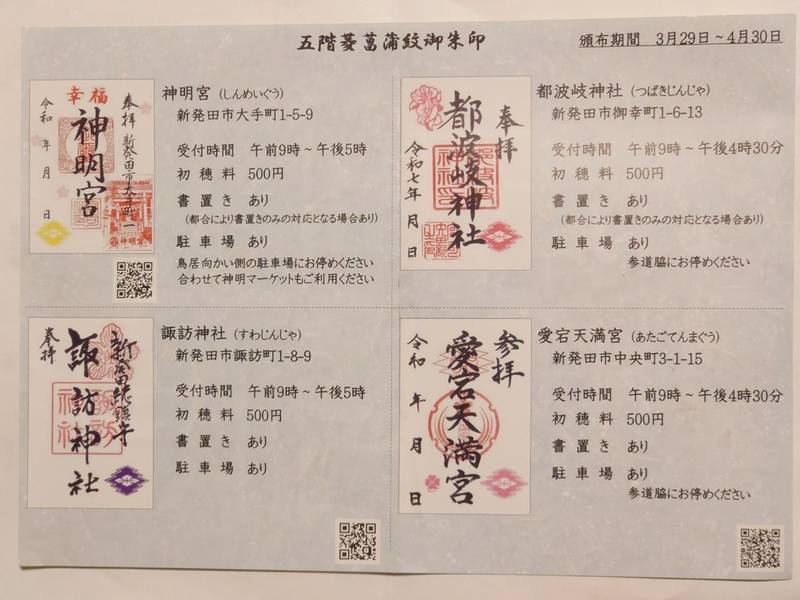 五階菱菖蒲紋御朱印
頒布期間 3月29日～4月30日
幸福
奉拝 新発田市大手町一
神明宮
令和 年 月 日
神明宮 (しんめいぐう)
新発田市大手町1-5-9
受付時間 午前9時～午後5時
初穂料 500円
書置き あり
(都合により書置きのみの対応となる場合あり)
駐車場 あり
鳥居向かい側の駐車場にお停めください
合わせて神明マーケットもご利用ください
奉拝
都波岐神社
令和七年 月 日
都波岐神社 (つばきじんじゃ)
新発田市御幸町1-6-13
受付時間 午前9時～午後4時30分
初穂料 500円
書置き あり
(都合により書置きのみの対応となる場合あり)
駐車場 あり
参道脇にお停めください
奉拝
諏訪神社
諏訪神社 (すわじんじゃ)
新発田市諏訪町1-8-9
受付時間 午前9時～午後5時
初穂料 500円
書置き あり
駐車場 あり
参拝
愛宕天満宮
令和 年 月 日
愛宕天満宮 (あたごてんまぐう)
新発田市中央町3-1-15
受付時間 午前9時～午後4時30分
初穂料 500円
書置き あり
駐車場 あり
参道脇にお停めください